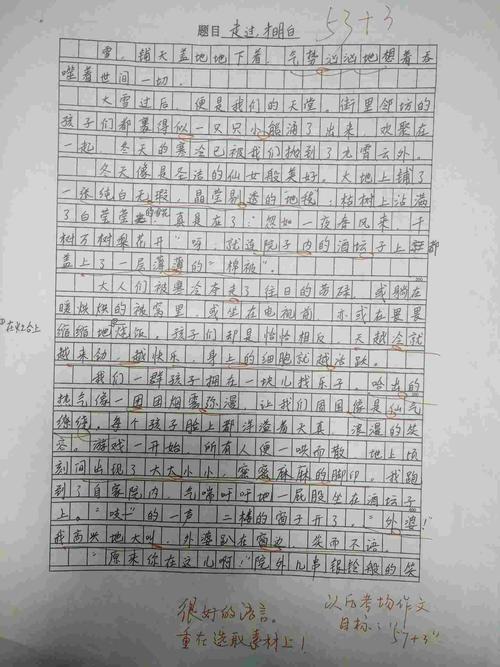 53+3
题目 走过,才明白
雪,铺天盖地地下着,气势汹汹地想着吞
噬着世间一切。
大雪过后,便是我们的天堂。街里邻坊的
孩子们都裹得似一只只小熊涌了出来,欢聚在
一起,冬天的寒冷已被我们抛到了九霄云外。
冬天像是圣洁的仙女般美好。大地上铺了
一张纯白无瑕,晶莹剔透的地毯;枯树上沾满
了白莹莹的雪,真是在了"忽如一夜春风来,千
树万树梨花开"呀,就连院子内的酒坛子上都
盖上了一层薄薄的"棉被"。
大人们被寒冷夺走了往日的劳碌,或躺在
暖烘烘的被窝里,或坐在电视前,亦或在畏畏
在灶台上
缩缩地烧饭。孩子们却是恰恰相反,天越冷就
越来劲,越快乐,身上的细胞就越活跃。
我们一群孩子拥在一块儿找乐子。哈出的
热气像一团团烟雾弥漫,让我们周围像是仙气
缭绕。每个孩子脸上都洋溢着天真、浪漫的笑
容。游戏一开始,所有人便一哄而散,地上顷
刻间出现了大大小小,密密麻麻的脚印。我跑
到了自家院内,气喘吁吁地一屁股坐在酒坛子
上。"吱"的一声,二楼的窗子开了。"外婆!"
我高兴地大叫,外婆趴在窗边,笑而不语。
"原来你在这儿啊!"院外儿串银铃般的笑
很好的语言。
重在选取素材上!
以后考场作文
目标:"57+3"